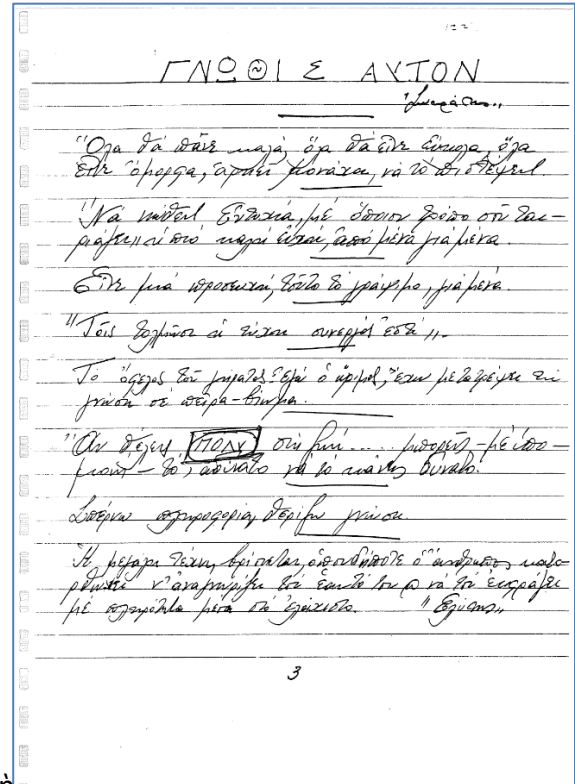 ΓΝΩΘΙ Σ ΑΥΤΟΝ
"Σωκράτης"
"Όλα θά πᾶνε καλά, όλα θα εἶνε εύκολα, όλα
εἶνε όμορφα, ἀρκεῖ μονάχα, νά τό πιστέψεις
"Νά κάθεσαι Εὐτυχία, μέ όποιον τρόπο σοῦ ται-
ριάζει" ἡ πιό καλή εὐχή, ἀπό μένα γιά μένα.
Εἶνε μιά προσευχή, τοῦτο τό γράψιμο, γιά μένα.
"Τοῖς τολμῶσι ἡ τύχη συνεργός ἐστί".
Το όφελος τοῦ γήρατος: Ἐγώ ὁ ώριμος, ἔχω μετατρέψει τή
γνώση σε πείρα-βίωμα.
"Ἄν θέλεις ΠΟΛΥ στή ζωή..... μπορεῖς - μέ ὑπο-
μονή - τό ἀδύνατο νά τό κάνεις δυνατό.
Σπέρνω πληροφορία, θερίζω γνώση.
Ἡ μεγάλη τέχνη βρίσκεται, ὁπουδήποτε ὁ ἄνθρωπος κατο-
ρθώνει ν' ἀναγνωρίζει τόν ἑαυτό του & νά τόν ἐκφράζει
μέ πληρότητα μέσα στό ἐλάχιστο. "Ἐλύτης"
3